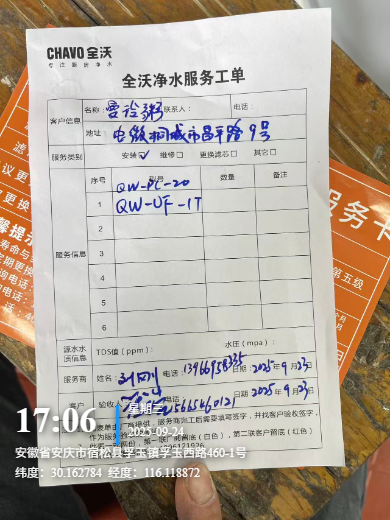 CHAVO全沃
专注新居净水
全沃净水服务工单
客户信息 名称: 联系人: 电话:
地址: 安徽桐城市昌平路9号
服务类别 安装☑ 维修□ 更换滤芯□ 其它□
序号 型号 数量 备注
服务信息
QW-PC-20
1 QW-UF-1T
2
3
4
5
6
源水水质信息 TDS值(ppm): 水压(mpa):
服务商 姓名: 刘刚 电话: 13966958335 日期: 2025年9月23日
客户 验收人 电话 日期: 2025年9月23日
服务商完工后需要填写签字,并找客户验收签字,
第一联厂商留底(白色),第二联客户留底(红色)
17:06 星期三
2025-09-24
安徽省安庆市宿松县孚玉镇孚玉西路460-1号
纬度:30.162784 经度:116.118872
服务卡
第五级